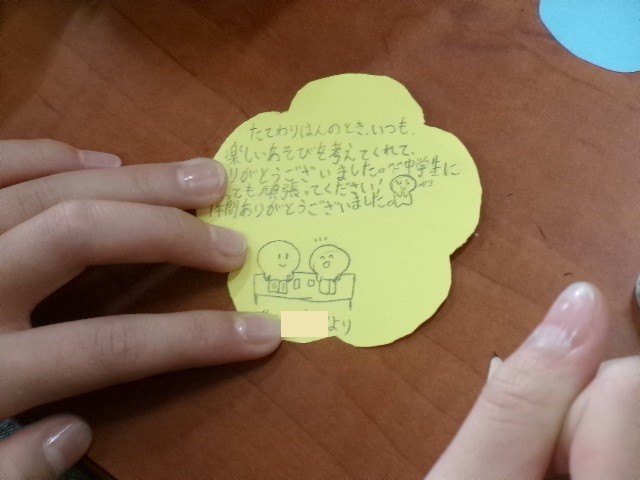 たてわりはんのとき、いつも、
楽しいあそびを考えてくれて、
りがとうございました。中学生に
ても頑張ってください!
年間ありがとうございました。
より